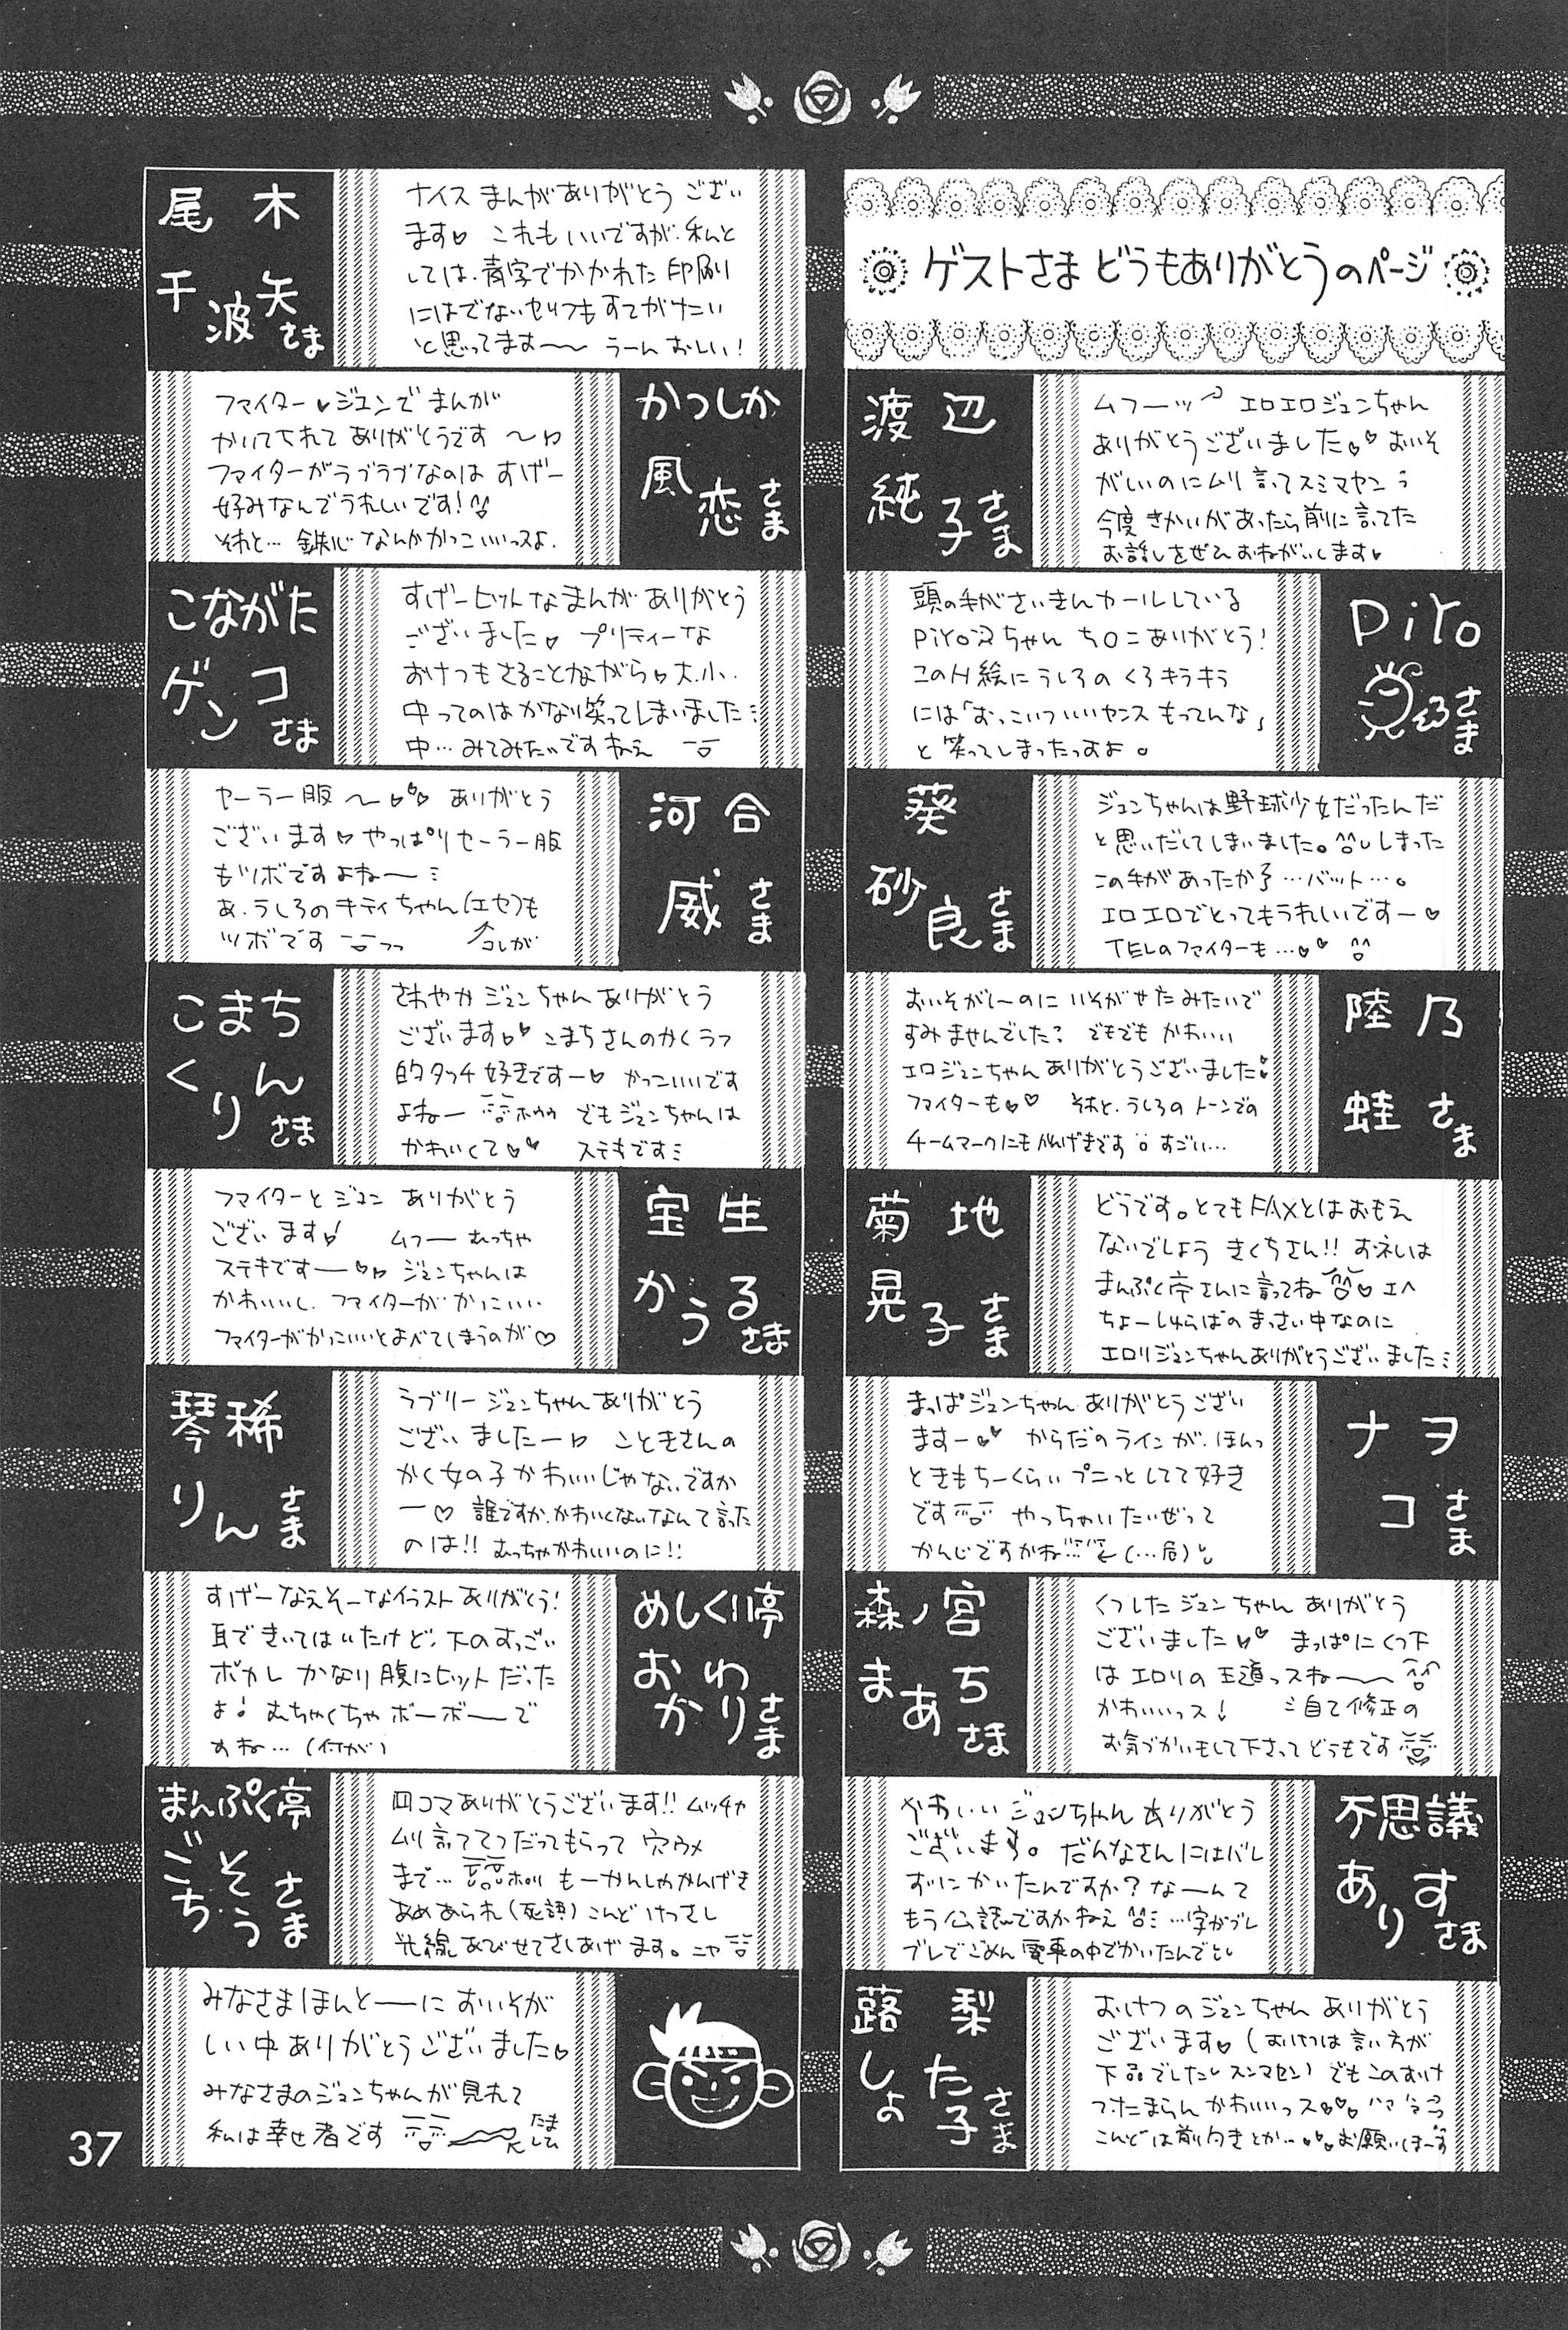 ゲストさま どうもありがとうのページ
渡辺
純子さま
ムフーッ エロエロジュンちゃん
ありがとうございました♡♡ おいそ
がしいのにムリ言ってスミマセン
今度 きかいがあったら前に言ってた
お話しをぜひおねがいします♥
PiYo
さま
頭の毛がさいきんカールしている
PiYoちゃん ありがとう!
このH絵にうしろの くろキラキラ
には「おっこいついいセンス もってんな」
と 笑ってしまったっすよ。
葵
砂良さま
ジュンちゃんは野球少女だったんだ
と思いだしてしまいました。しまった
この手があったか…バット…。
エロエロでとってもうれしいですー♡
TELのファイターも…♡♡
陸乃
蛙さま
おいそがしーのに いそがせたみたいで
すみませんでした でもでも かわいい
エロジュンちゃん ありがとうございました
ファイターも♡♡ それと、うしろの トーンでの
チームマークにもかんげきです すごい…
菊地
晃子さま
どうです。とてもFAXとはおもえ
ないでしょう きくちさん!! お礼は
まんぷく亭さんに言ってね♡ エヘ
ちょーしゅらばの まっさい中なのに
エロリジュンちゃんありがとうございました
ナヲ
コさま
まっぱジュンちゃん ありがとうござい
ますー♡♡ からだのラインが、ほんっ
ときもちーくらい プニっとしてて好き
です やっちゃいたいぜって
かんじですかね ←(…局)
森ノ宮
まあちさま
くつしたジュンちゃん ありがとう
ございました♡♡ まっぱにくつ下
は エロリの王道っスね〜
かわいいっス! 自己修正の
お気づかいもして下さって どうもです
不思議
ありすさま
かわいい ジュンちゃん ありがとう
ございます。 だんなさんにはバレ
ずに かいたんですか? なーんて
もう公認ですかねえ …字がブレ
ブレでごめん 電車の中でかいたんでし
蕗梨
しょた子さま
おけつのジュンちゃん ありがとう
ございます♡ (おけつは言い方が
下品でした スンマセン) でもこのおけ
つたまらん かわいいっス♡♡♡
こんどは前向きとか…♡♡♡お願いしまーす
尾木
千波矢さま
ナイス まんがありがとう ござい
ます♡ これもいいですが、私と
しては、青字でかかれた 印刷
にはでないセリフもすてがたい
と思ってます〜 うーん おしい!
かつしか
風恋さま
ファイター♥ジュンで まんが
かいてくれて ありがとうです 〜♡
ファイターがラブラブなのは すげー
好みなんでうれしいです!
それと… 鉄心 なんかかっこいいっスよ.
こながた
ゲンコさま
すげーヒットなまんが ありがとう
ございました♡ プリティーな
おけつもさることながら♡大.小.
中ってのは かなり笑ってしまいました
中… みてみたいですねえ
河合
威さま
セーラー服〜♡♡♡ ありがとう
ございます♡ やっぱりセーラー服
もツボですよねー
あ、うしろの キティちゃん(エセ)も
ツボです ↑コレが
こまち
くりんさま
さわやか ジュンちゃん ありがとう
ございます♡♡ こまちさんのかくラフ
的タッチ 好きですー♡ かっこいいです
よねー でもジュンちゃんは
かわいくて♡♡ ステキです
宝生
かうるさま
ファイターとジュン ありがとう
ございます! ムフー むっちゃ
ステキですー♡♡ ジュンちゃんは
かわいいし、ファイターがかっこいい
ファイターがかっこいいとよべてしまうのが♡
琴稀
りんさま
ラブリー ジュンちゃん ありがとう
ございましたー♡ こときさんの
かく女の子かわいいじゃないですか
ー♡ 誰ですか、かわいくないなんて言った
のは!! むっちゃかわいいのに!!
めしくり亭
おかわりさま
すげーなえそーなイラスト ありがとう!
耳できいてはいたけど、下のすっごい
ボカし かなり腹にヒットだった
よ! むちゃくちゃ ボーボーで
すね… (付が)
まんぷく亭
ごちそうさま
四コマありがとうございます!! ムッチャ
ムリ言っててつだってもらって 穴ウメ
まで… もーかんしゃかんげき
あめあられ(死語) こんど けっさし
光線 あびせてさしあげます。ニヤ
みなさまほんとーに おいそが
しい中ありがとうございました♡
みなさまのジュンちゃんが見れて
私は幸せ者です
37